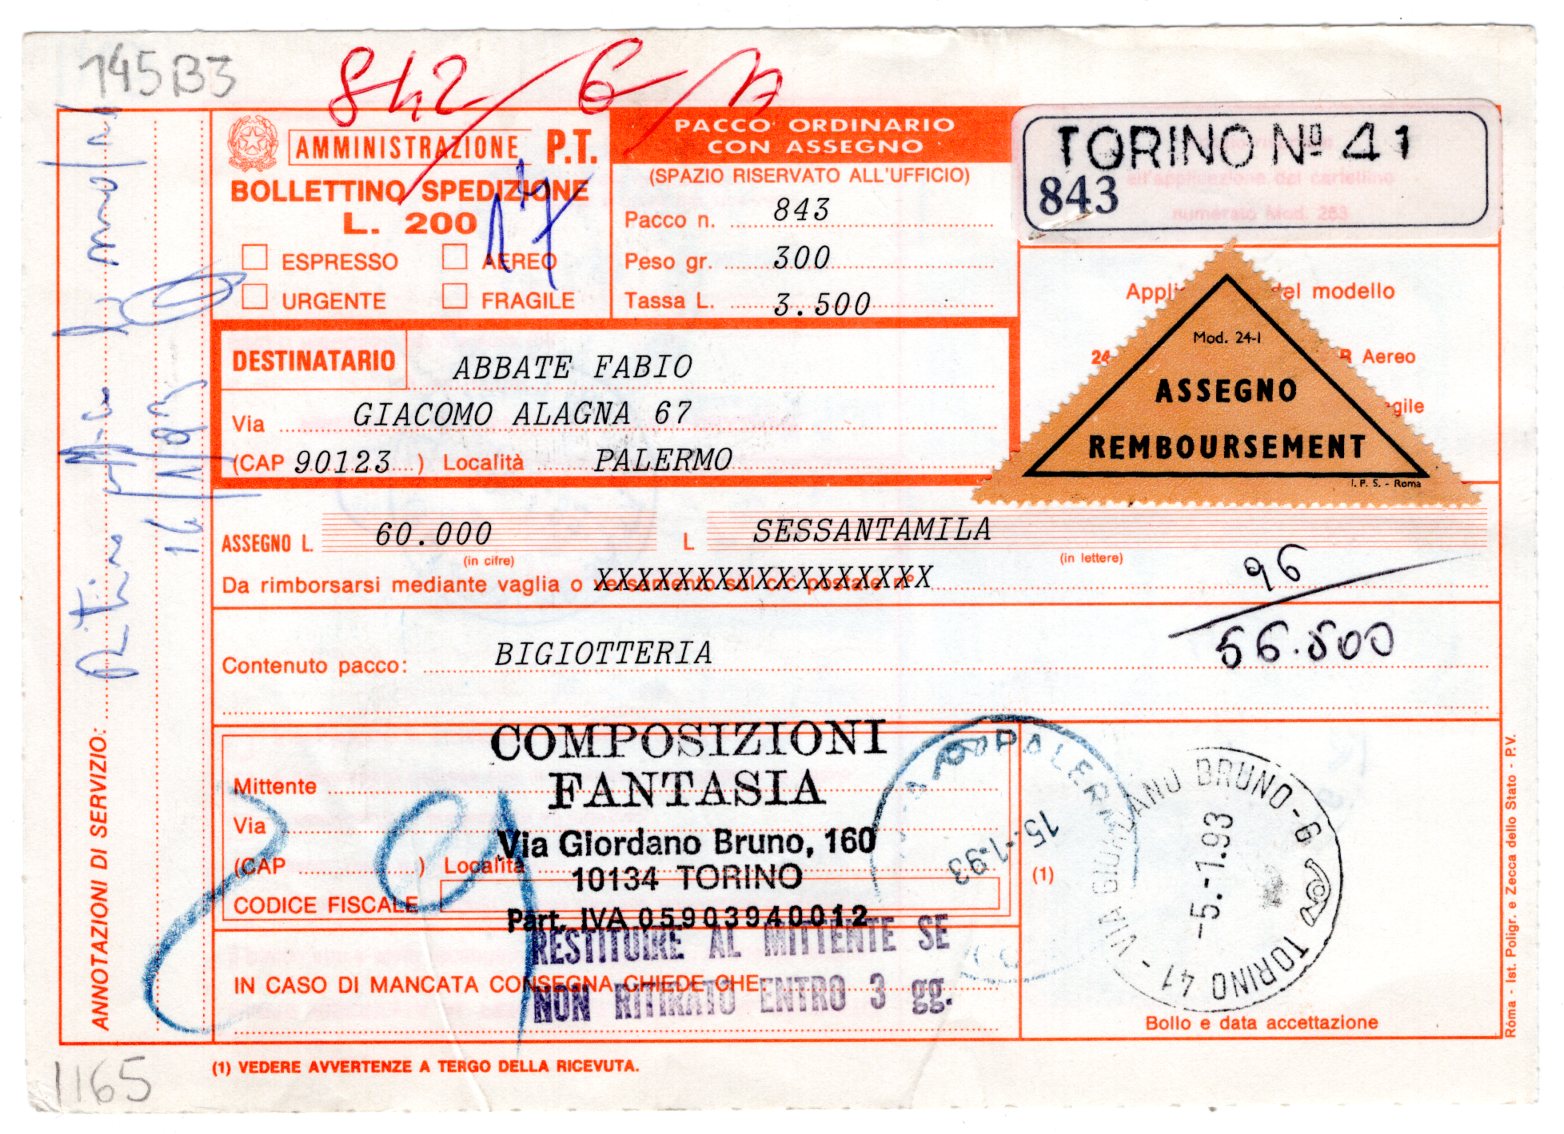 145B3
842/6-
AMMINISTRAZIONE P.T.
BOLLETTINO SPEDIZIONE
L. 200
17
ESPRESSO AEREO
URGENTE FRAGILE
PACCO ORDINARIO
CON ASSEGNO
(SPAZIO RISERVATO ALL'UFFICIO)
Pacco n. 843
Peso gr. 300
Tassa L. 3.500
TORINO Nº 41
843
all'applicazione del cartellino
numerato Mod. 253
Appl del modello
24 R Aereo
gile
Mod. 24-I
ASSEGNO
REMBOURSEMENT
I. P. S. - Roma
DESTINATARIO ABBATE FABIO
Via GIACOMO ALAGNA 67
(CAP 90123 ) Località PALERMO
ASSEGNO L. 60.000 L SESSANTAMILA
(in cifre) (in lettere)
Da rimborsarsi mediante vaglia o versamento sul c/c postale nº XXXXXXXXXXXXXXXXX
96
56.500
Contenuto pacco: BIGIOTTERIA
Mittente
Via
(CAP ) Località
CODICE FISCALE
COMPOSIZIONI
FANTASIA
Via Giordano Bruno, 160
10134 TORINO
Part. IVA 05903940012
IN CASO DI MANCATA CONSEGNA CHIEDE CHE
RESTITUIRE AL MITTENTE SE
NON RITIRATO ENTRO 3 gg.
PALERMO
15.-1.93
(1)
TORINO 41 - VIA GIORDANO BRUNO-G
-5.-1.93
Bollo e data accettazione
ANNOTAZIONI DI SERVIZIO:
16/1/93
Roma - Ist. Poligr. e Zecca dello Stato - P.V.
(1) VEDERE AVVERTENZE A TERGO DELLA RICEVUTA.
1165